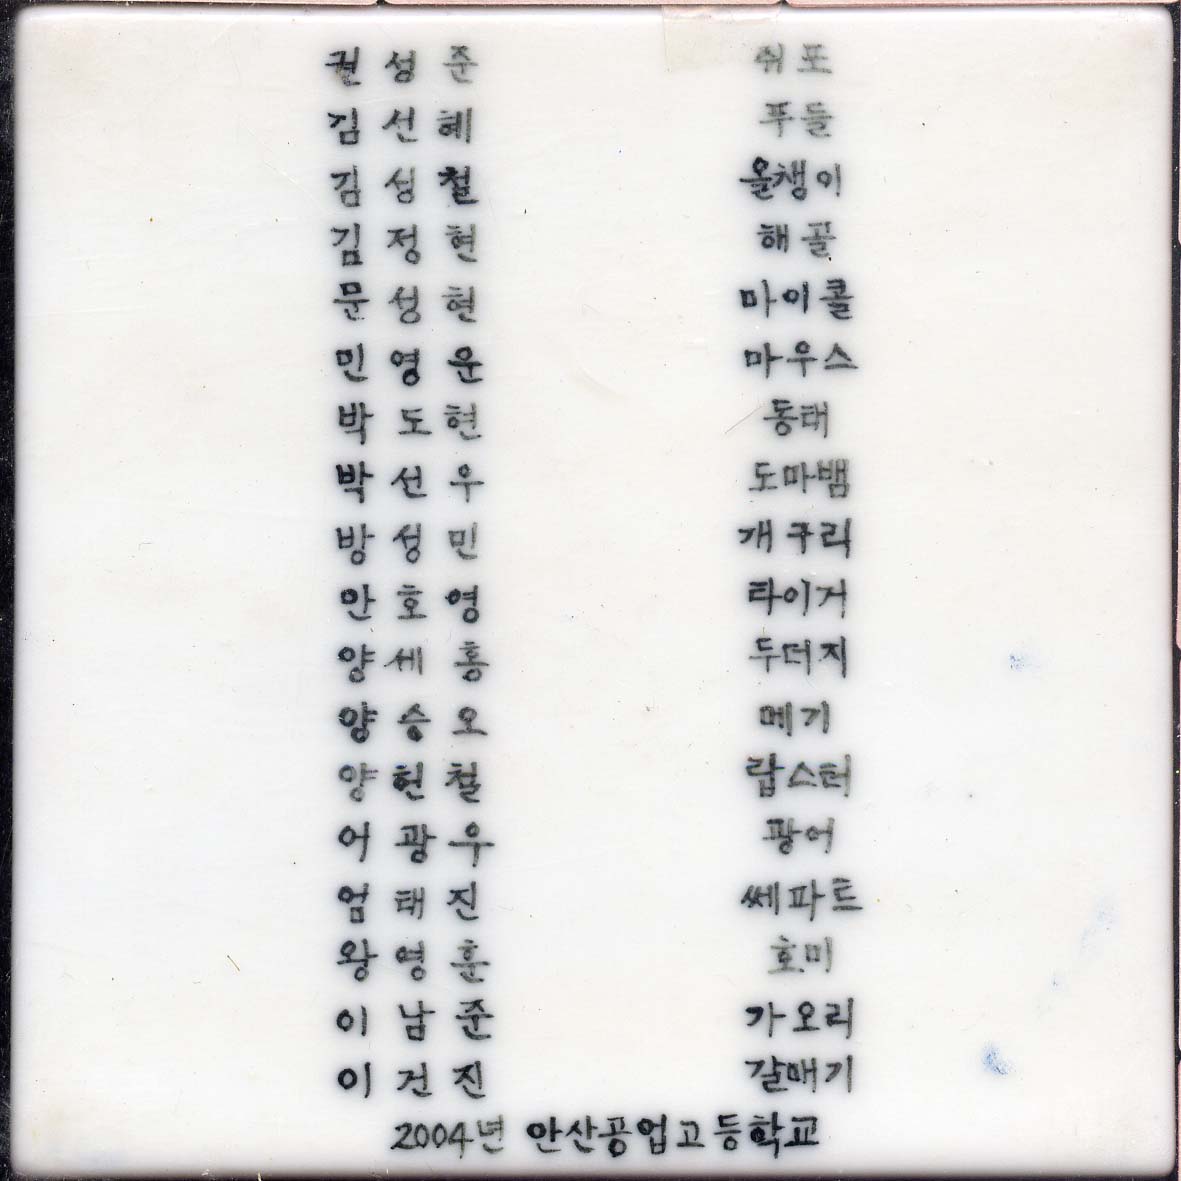 권성준 쥐포
김선혜 푸들
김성철 올챙이
김정현 해골
문성현 마이콜
민영운 마우스
박도현 동태
박선우 도마뱀
방성민 개구리
안호영 타이거
양세홍 두더지
양승오 메기
양현철 랍스터
어광우 광어
엄태진 쎄파트
왕영훈 호미
이남준 가오리
이건진 갈매기
2004년 안산공업고등학교